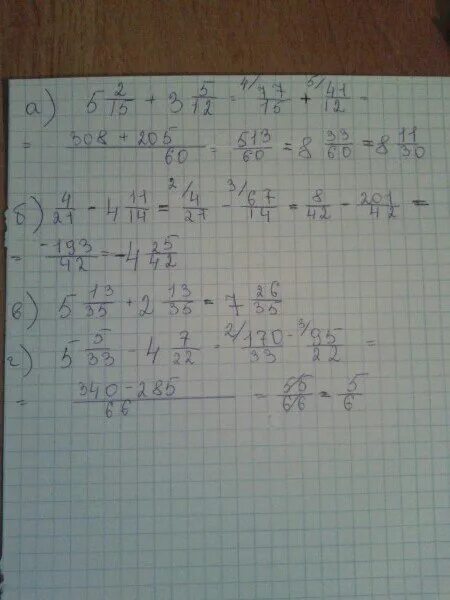 а) 5 2/15 + 3 5/12 = 4/ 77/15 + 5/ 41/12 =
= 308 + 205/60 = 513/60 = 8 33/60 = 8 11/30
б) 4/21 - 4 11/14 = 2/ 4/21 - 3/ 67/14 = 8/42 - 201/42 =
= -193/42 = -4 25/42
в) 5 13/35 + 2 13/35 = 7 26/35
г) 5 5/33 - 4 7/22 = 2/ 170/33 - 3/ 95/22 =
= 340 - 285/66 = 55/66 = 5/6